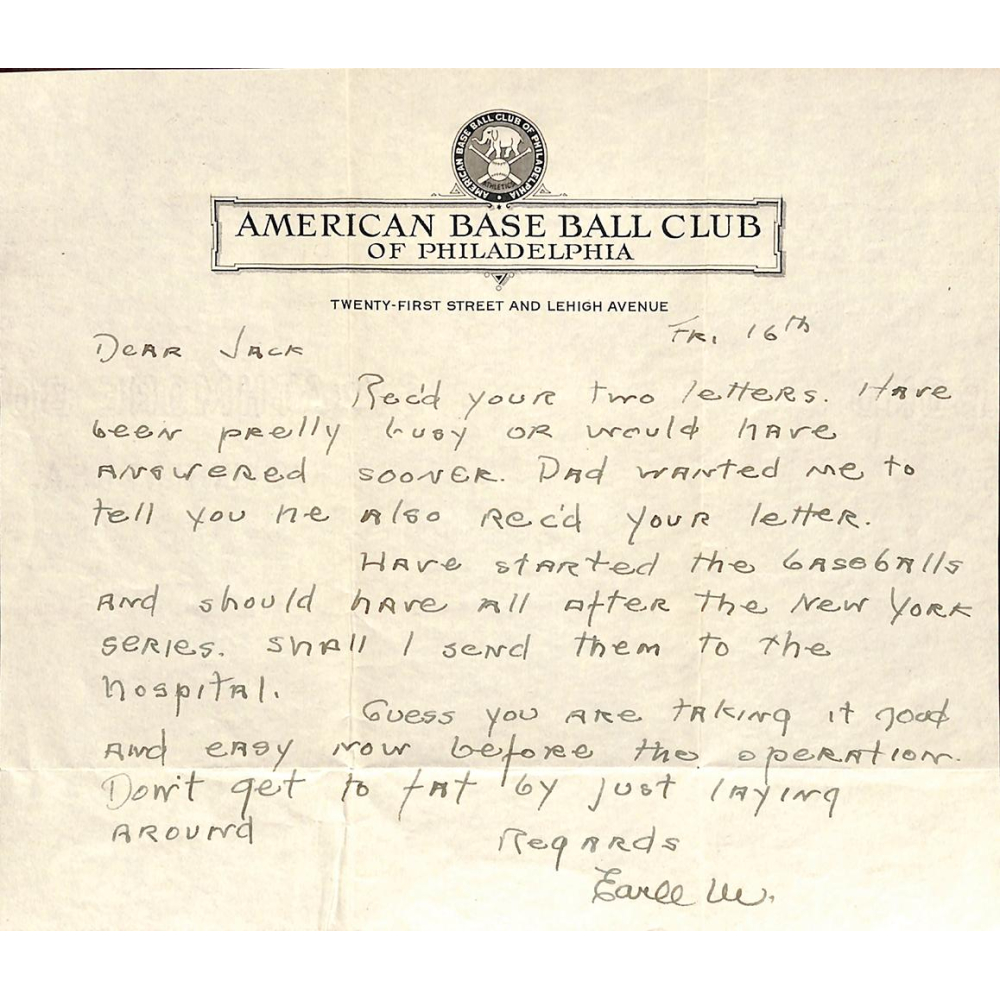 AMERICAN BASE BALL CLUB OF PHILADELPHIA
ATHLETICS
AMERICAN BASE BALL CLUB
OF PHILADELPHIA
TWENTY-FIRST STREET AND LEHIGH AVENUE
Fr. 16th
Dear Jack
Rec'd your two letters. Have
been pretty busy or would have
answered sooner. Dad wanted me to
tell you he also rec'd your letter.
Have started the baseballs
and should have all after the New York
series. Shall I send them to the
hospital.
Guess you are taking it good
and easy now before the operation.
Don't get to fat by just laying
around
Regards
Earle M.